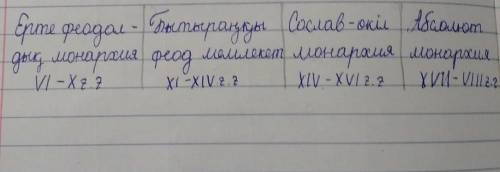 Ерте феодал-
дық монархия
VI – X ғ.ғ
Бытыраңқы
феод мемлекет
XI – XIV ғ.ғ
Сослав-өкіл
монархия
XIV – XVI ғ.ғ
Абсолют
монархия
XVII – VIII ғ.ғ